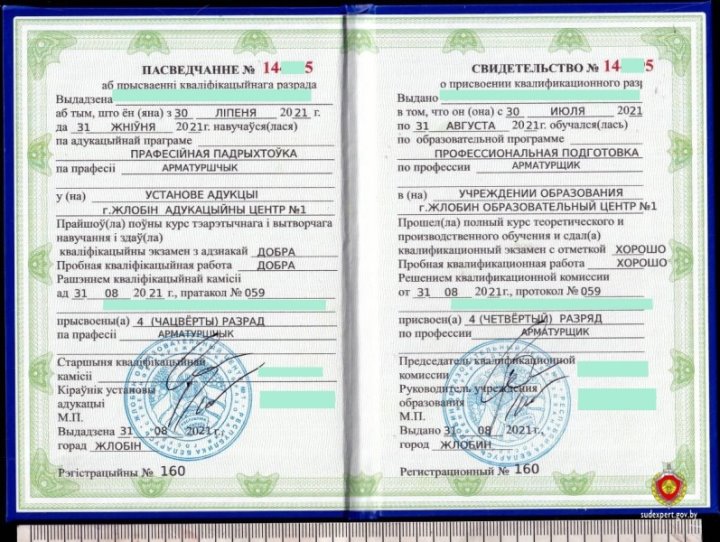 ПАСВЕДЧАННЕ № 14 5
аб прысваенні кваліфікацыйнага разрада
Выдадзена
аб тым, што ён (яна) з 30 ЛІПЕНЯ 2021 г.
да 31 ЖНІЎНЯ 2021г. навучаўся(лася)
па адукацыйнай праграме
ПРАФЕСІЙНАЯ ПАДРЫХТОЎКА
па прафесіі АРМАТУРШЧЫК
у (на) УСТАНОВЕ АДУКЦЫІ
г.ЖЛОБІН АДУКАЦЫЙНЫ ЦЕНТР №1
Прайшоў(ла) поўны курс тэарэтычнага і вытворчага
навучання і здаў(ла)
кваліфікацыйны экзамен з адзнакай ДОБРА
Пробная кваліфікацыйная работа ДОБРА
Рашэннем кваліфікацыйнай камісіі
ад 31 08 2021 г., пратакол № 059
прысвоены(а) 4 (ЧАЦВЁРТЫ) РАЗРАД
па прафесіі АРМАТУРШЧЫК
Старшыня кваліфікацыйнай
камісіі
Кіраўнік установы
адукацыі
М.П.
Выдадзена 31 08 2021г.
горад ЖЛОБІН
Рэгістрацыйны № 160
СВИДЕТЕЛЬСТВО № 14 5
о присвоении квалификационного раз
Выдано
в том, что он (она) с 30 ИЮЛЯ 2021
по 31 АВГУСТА 2021г. обучался(лась)
по образовательной программе
ПРОФЕССИОНАЛЬНАЯ ПОДГОТОВКА
по профессии АРМАТУРЩИК
в (на) УЧРЕЖДЕНИИ ОБРАЗОВАНИЯ
г.ЖЛОБИН ОБРАЗОВАТЕЛЬНЫЙ ЦЕНТР №1
Прошел(ла) полный курс теоретического и
производственного обучения и сдал(а)
квалификационный экзамен с отметкой ХОРОШО
Пробная квалификационная работа ХОРОШО
Решением квалификационной комиссии
от 31 08 2021г., протокол № 059
присвоен(а) 4 (ЧЕТВЁРТЫЙ) РАЗРЯД
по профессии АРМАТУРЩИК
Председатель квалификационной
комиссии
Руководитель учреждения
образования
М.П.
Выдано 31 08 2021г.
город ЖЛОБИН
Регистрационный № 160
sudexpert.gov.by